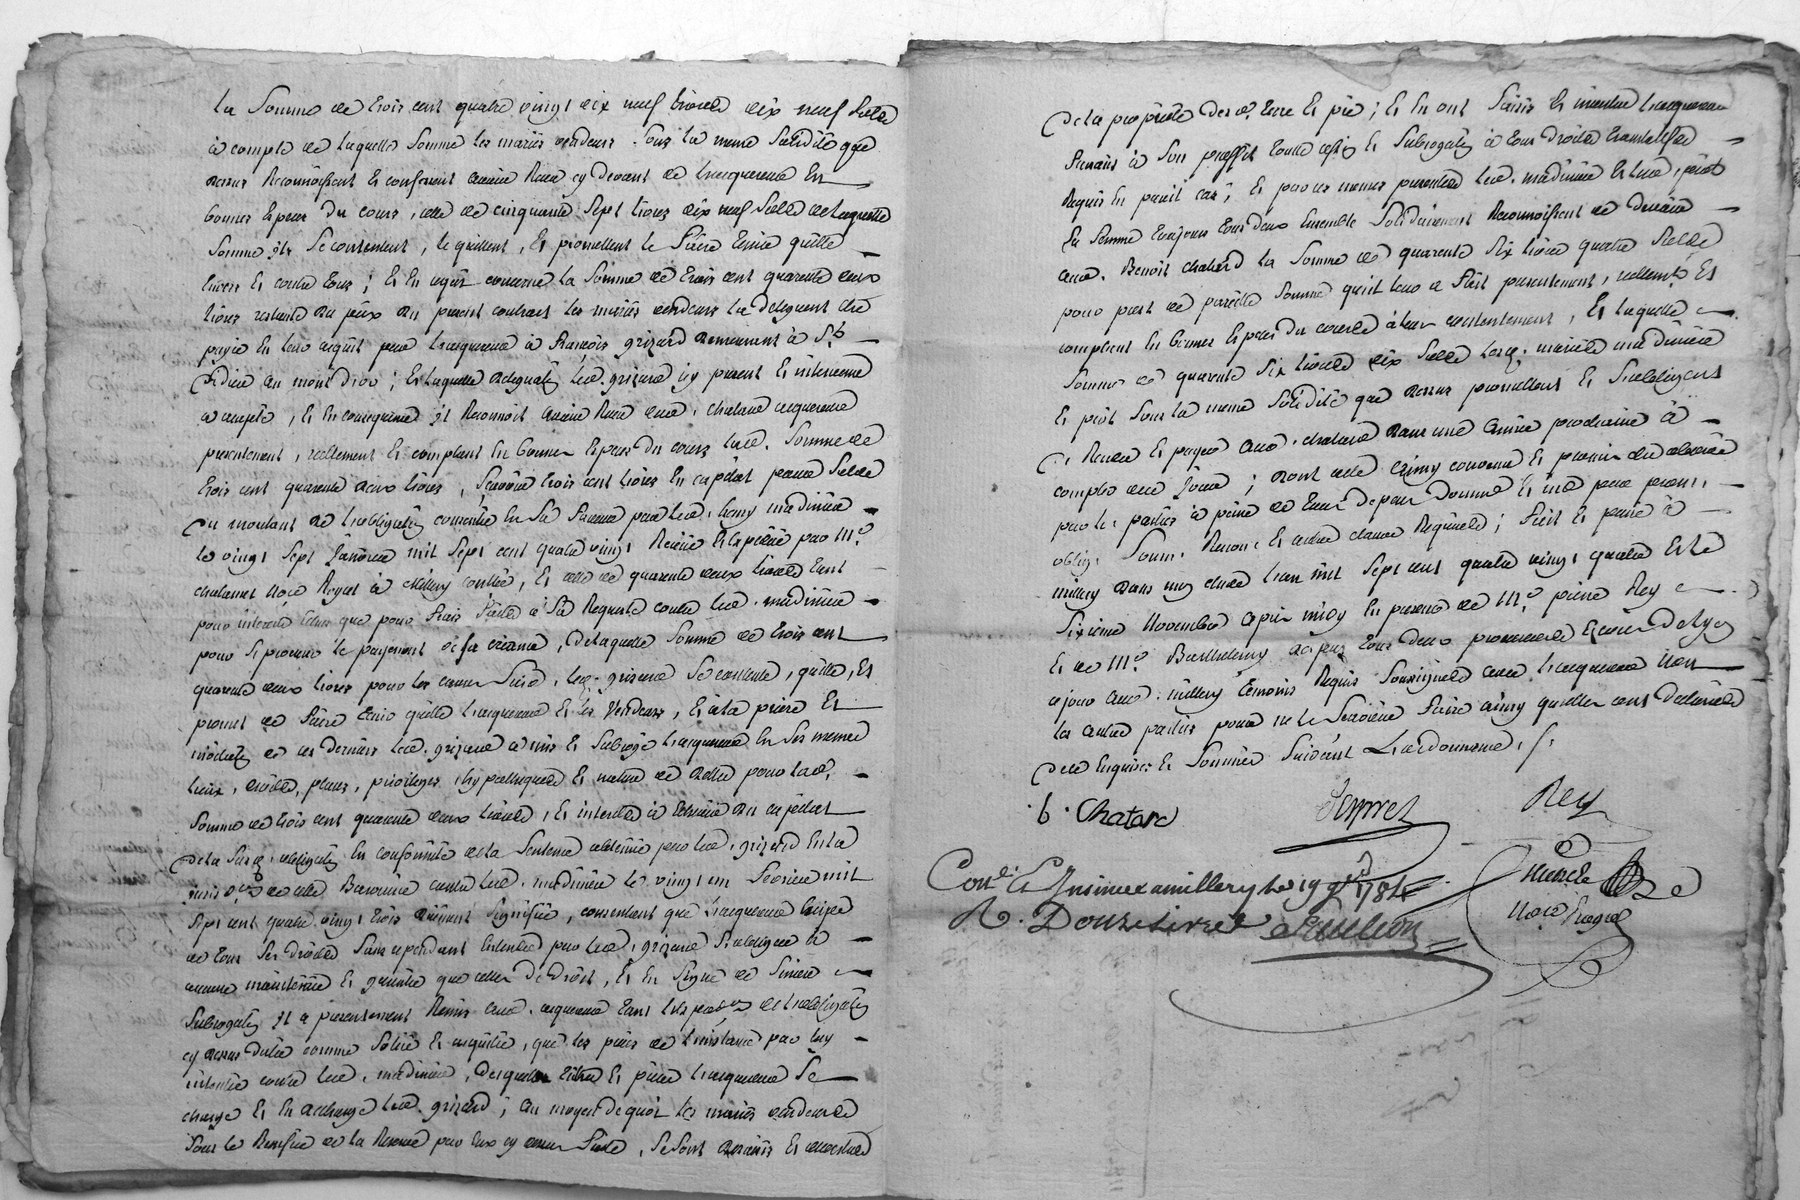 la Somme de trois cent quatre vingt dix neuf livres dix neuf Solds
à compte de laquelle Somme les mariés vendeurs Sous la meme Solidité que
dessus Reconnoissent et confessent avoir Reçu cy devant de l'acquereur En
bonnes Especes du cours, celle de cinquante Sept livres dix neuf Solds de laquelle
Somme ils Se contentent, le quittent, et promettent le faire tenir quitte
Envers et contre tous; et En ce qui concerne la Somme de trois cent quarante deux
livres restante du prix du present contrat les mariés vendeurs la deleguent etre
payée En leur acquit par l'acquereur à francois grizard demeurant à St
Didier au mont d'or; et laquelle delegation led. grizard icy present et intervenant
a accepté, et En consequence il Reconnoit avoir Reçu dud. chatard acquereur
presentement, reellement et comptant En bonnes Especes du cours lad. Somme de
trois cent quarante deux livres, Scavoir trois cent livres En capital pour Solde
du montant de l'obligation consentie En Sa faveur par led. remy madiniere
le vingt Sept Janvier mil Sept cent quatre vingt Reçue Et Expediée par Me
chatanet Nore Royal à Millery controllée, et celle de quarante deux livres tant
pour interets Echus que pour frais faits à Sa Requete contre led. madiniere
pour Se procurer le payement de Sa creance, de laquelle Somme de trois cent
quarante deux livres pour les causes Susd. led. grizard Se contente, quitte, et
promet de faire tenir quitte l'acquereur et les Vendeurs, Et à la priere Et
requisition de ces derniers led. grizard a mis et Subrogé l'acquereur En Ses memes
lieux, droits, places, privileges, hypotheques et nature de dette pour lad.
Somme de trois cent quarante deux livres, et interets à Echeoir du capital
de la Susd. obligation En conformité de la Sentence obtenue par led. grizard En la
de cette Baronnie contre led. madiniere le vingt un Fevrier mil
Sept cent quatre vingt trois dument Signifiée, consentant que l'acquereur Exerce
de tous Ses droits Sans cependant Entendre par led. grizard S'obliger à
aucune maintenue et garantie que celles de droit, Et En Signe de Sincere
Subrogation il a presentement Remis aud. acquereur tant l'Expedon de l'obligation
cy dessus datée comme Soldée et acquittée, que les pieces de l'instance par luy
intentée contre led. madiniere, desquels titres et pieces l'acquereur Se
charge et En decharge led. grizard; Au moyen de quoi les mariés vendeurs
Sous le Benefice de la Reserve par Eux cy dessus faite, Se Sont demis et devestus
de la proprieté desd. terre et pré; et En ont Saisi et investi l'acquereur
Prenant à Son proffit toute cession et Subrogation à tous droits translatifs
Requis En pareil cas; et par ces memes presentes led. madiniere et lad. piot
Sa femme toujours tous deux Ensemble Solidairement Reconnoissent de devoir
aud. Benoit chatard la Somme de quarante Six livres quatre Solds
pour prest de pareille Somme qu'il leur a fait presentement, reellemt. Et
comptant En bonnes Especes du cours à leur contentement, Et laquelle
Somme de quarante Six livres dix Solds lesd. mariés madiniere
et piot Sous la meme Solidité que dessus promettent et S'obligent
de Rendre et payer aud. chatard dans une année prochaine à
compter de ce jour; dont acte ainsy convenu et promis etre observé
par les parties à peine de tous depens Dommages et interets pour promes.
oblig. Soum. Renonc. et autres clauses Requises; fait et passé à
millery dans mon etude l'an mil Sept cent quatre vingt quatre Et le
Sixieme Novembre apres midy En presence de Me pierre Rey
et de Me Barthelemy tous deux
ce jour aud. millery temoins Requis Soussignés avec l'acquereur Non
les autres parties pour ne le Scavoir faire ainsy qu'elles ont declaré
de ce Enquises et Sommées Suivant L'ordonnance./.
b. Chatard
Rey
Con.lé et Insinué a millery le 19 9bre 1784
R. Douze livres
Nore Royal